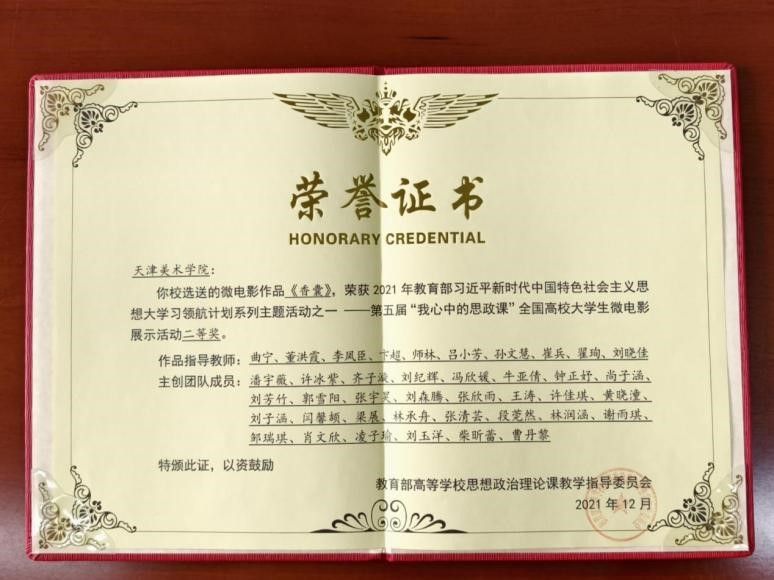 荣誉证书
HONORARY CREDENTIAL
天津美术学院：
你校选送的微电影作品《香囊》，荣获2021年教育部习近平新时代中国特色社会主义思
想大学习领航计划系列主题活动之一 ——第五届“我心中的思政课”全国高校大学生微电影
展示活动二等奖。
作品指导教师：曲宁、董洪霞、李凤臣、卞超、师林、吕小芳、孙文慧、崔兵、翟珣、刘晓佳
主创团队成员：潘宇薇、许冰紫、齐子漩、刘纪辉、冯欣媛、牛亚倩、钟正妤、尚子涵、
刘芳竹、郭雪阳、张宇昊、刘森腾、张欣雨、王涛、许佳琪、黄晓潼、
刘子涵、闫馨頔、梁展、林承舟、张清芸、段菀然、林润涵、谢雨琪、
邹瑞琪、肖文欣、凌子瑜、刘玉洋、柴昕蕾、曹丹黎
特颁此证，以资鼓励
教育部高等学校思想政治理论课教学指导委员会
2021年12月